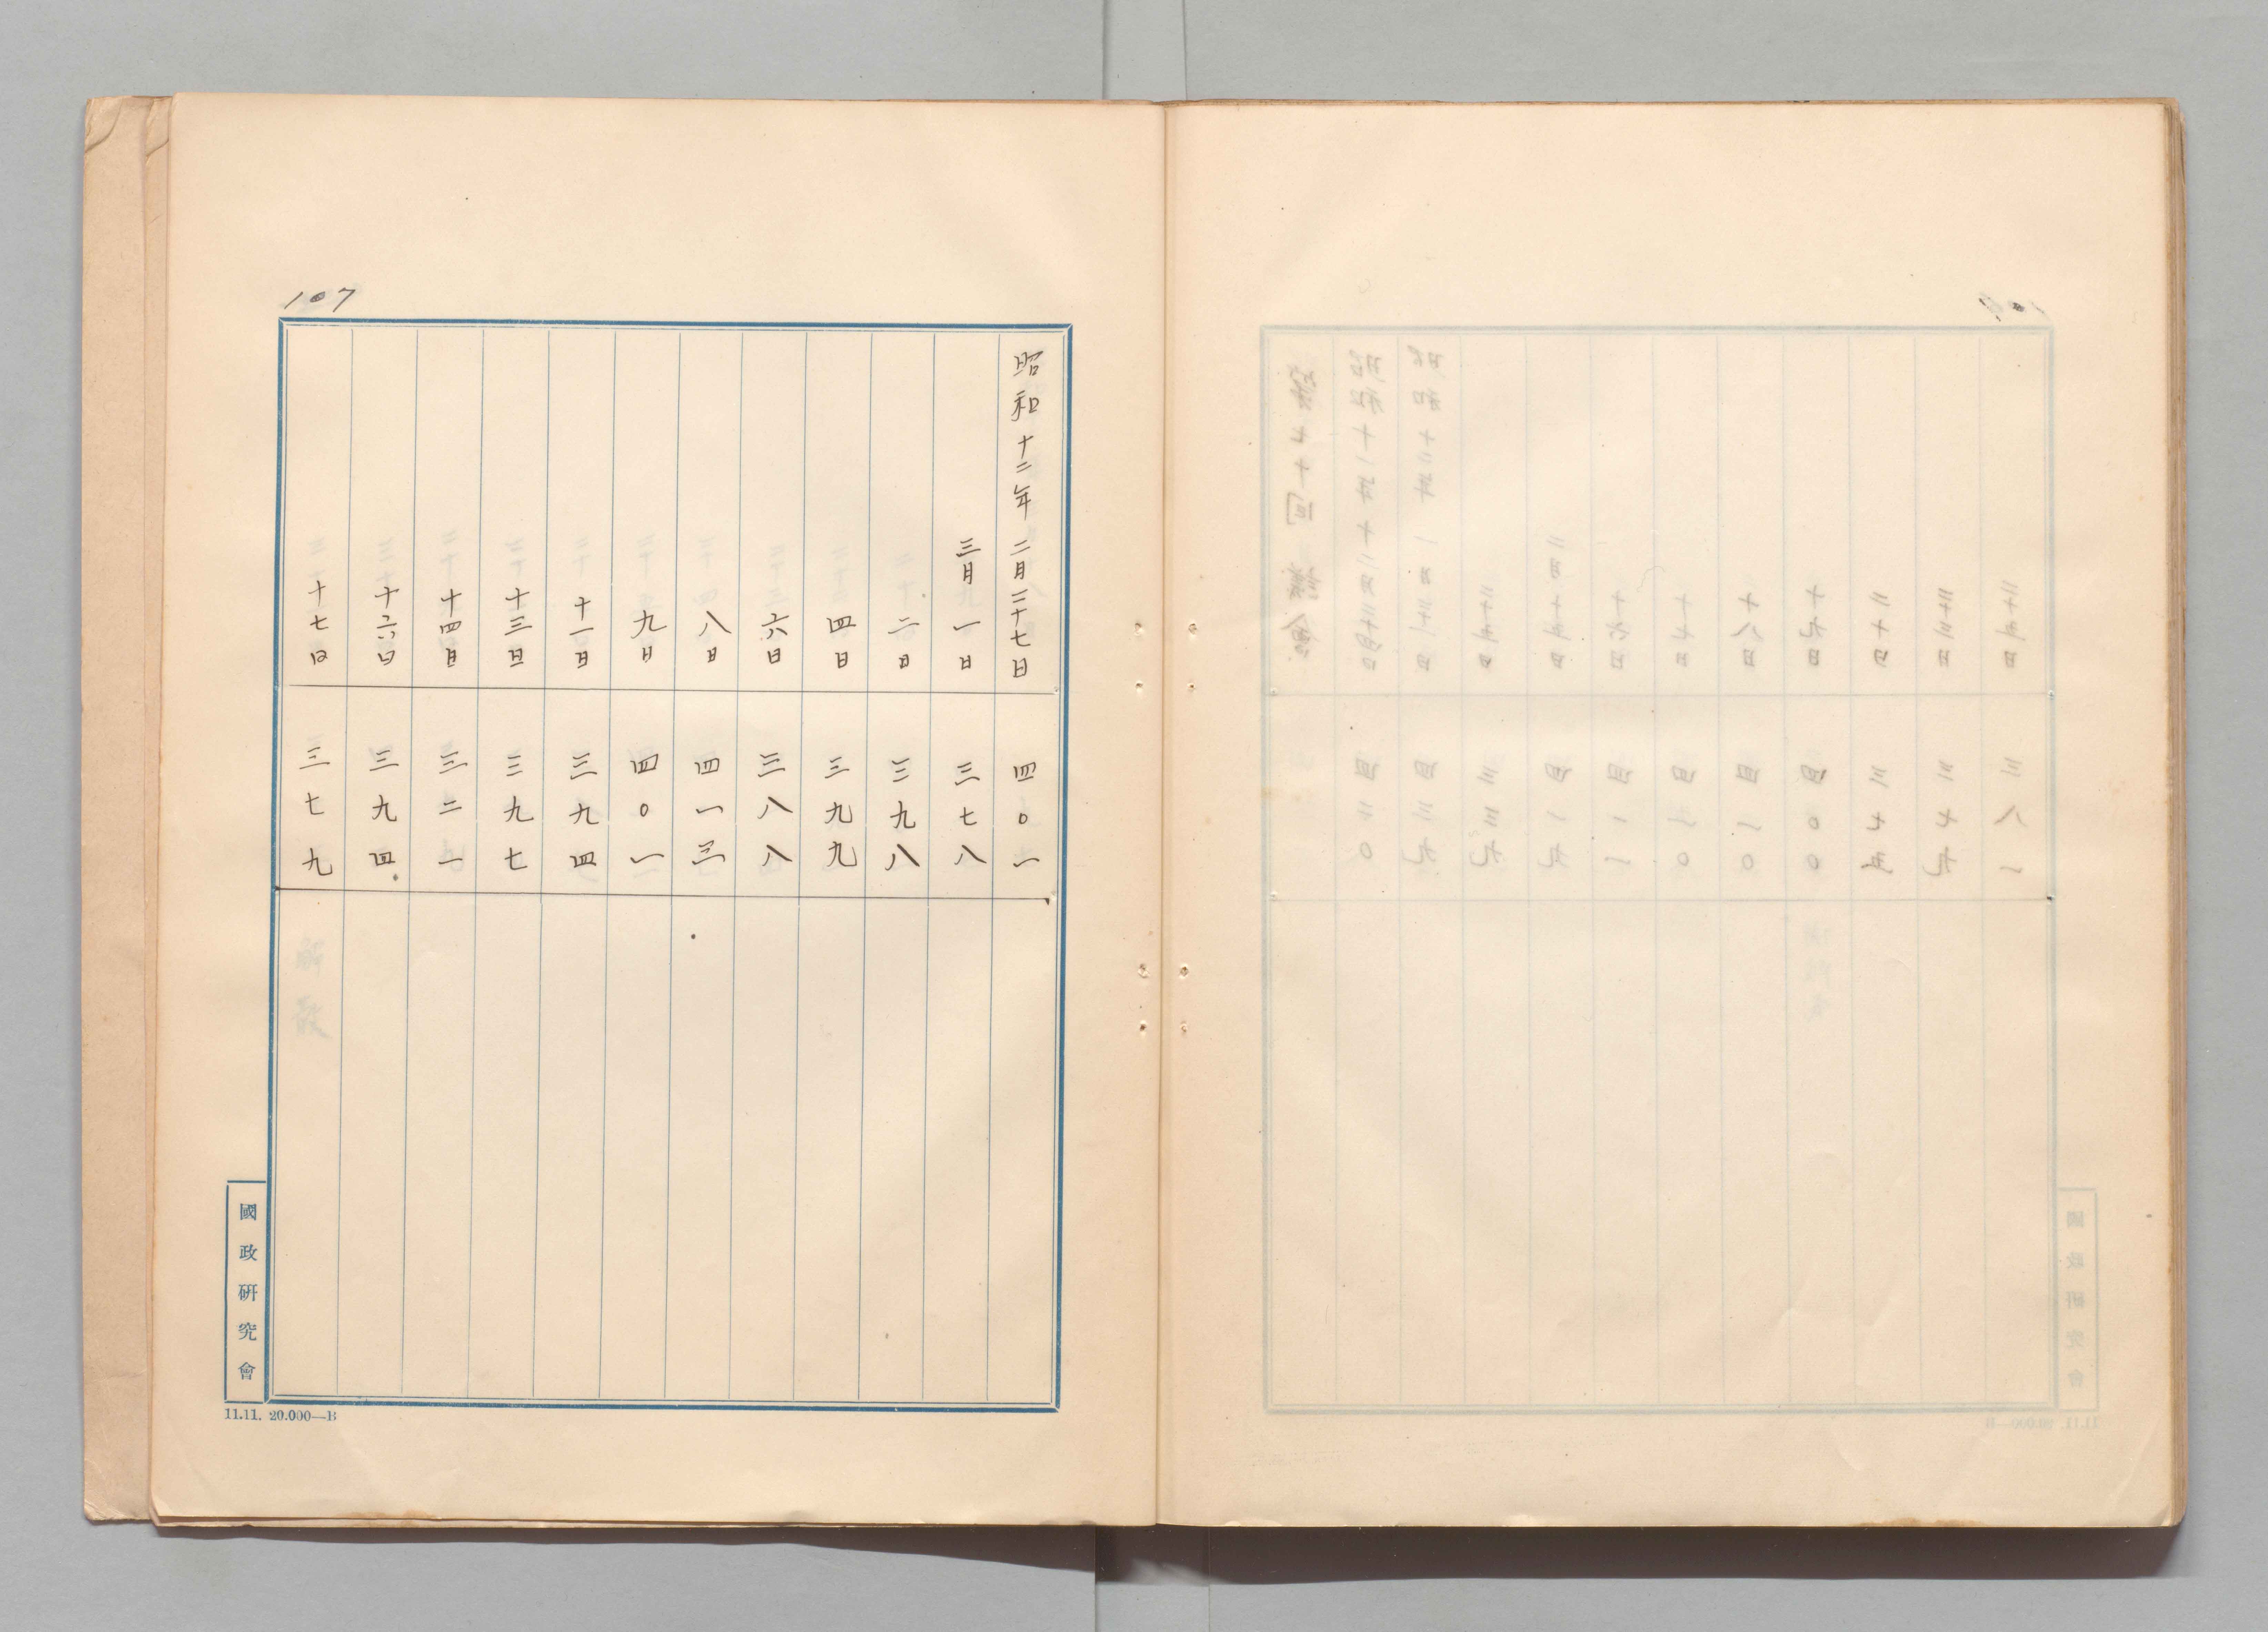 107
昭和十二年二月二十七日 四〇一
三月一日 三七八
二日 三九八
四日 三九九
六日 三八八
八日 四一三
九日 四〇一
十一日 三九四
十三日 三九七
十四日 三二一
十六日 三九四
十七日 三七九
國政研究會
11.11. 20.000—B